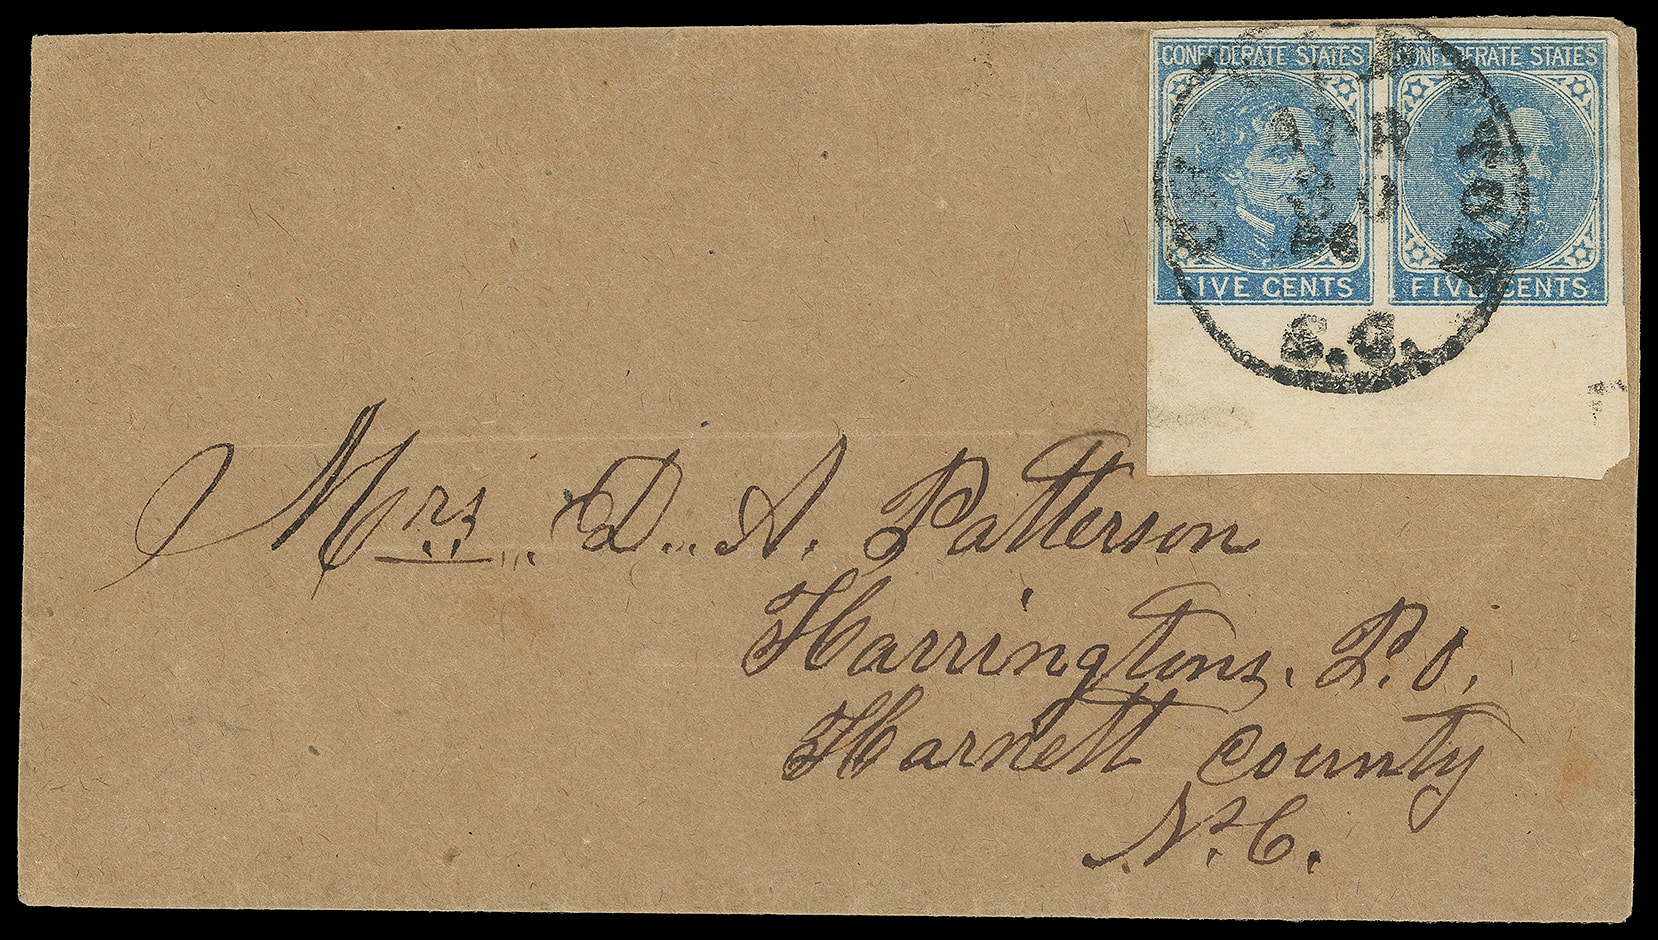 CONFEDERATE STATES CONFEDERATE STATES
APR
FIVE CENTS FIVE CENTS
S.C.
Mrs. D. A. Patterson
Harringtons. P.O.
Harnett County
N.C.